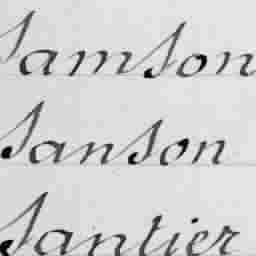 Samson
Sanson
Santier